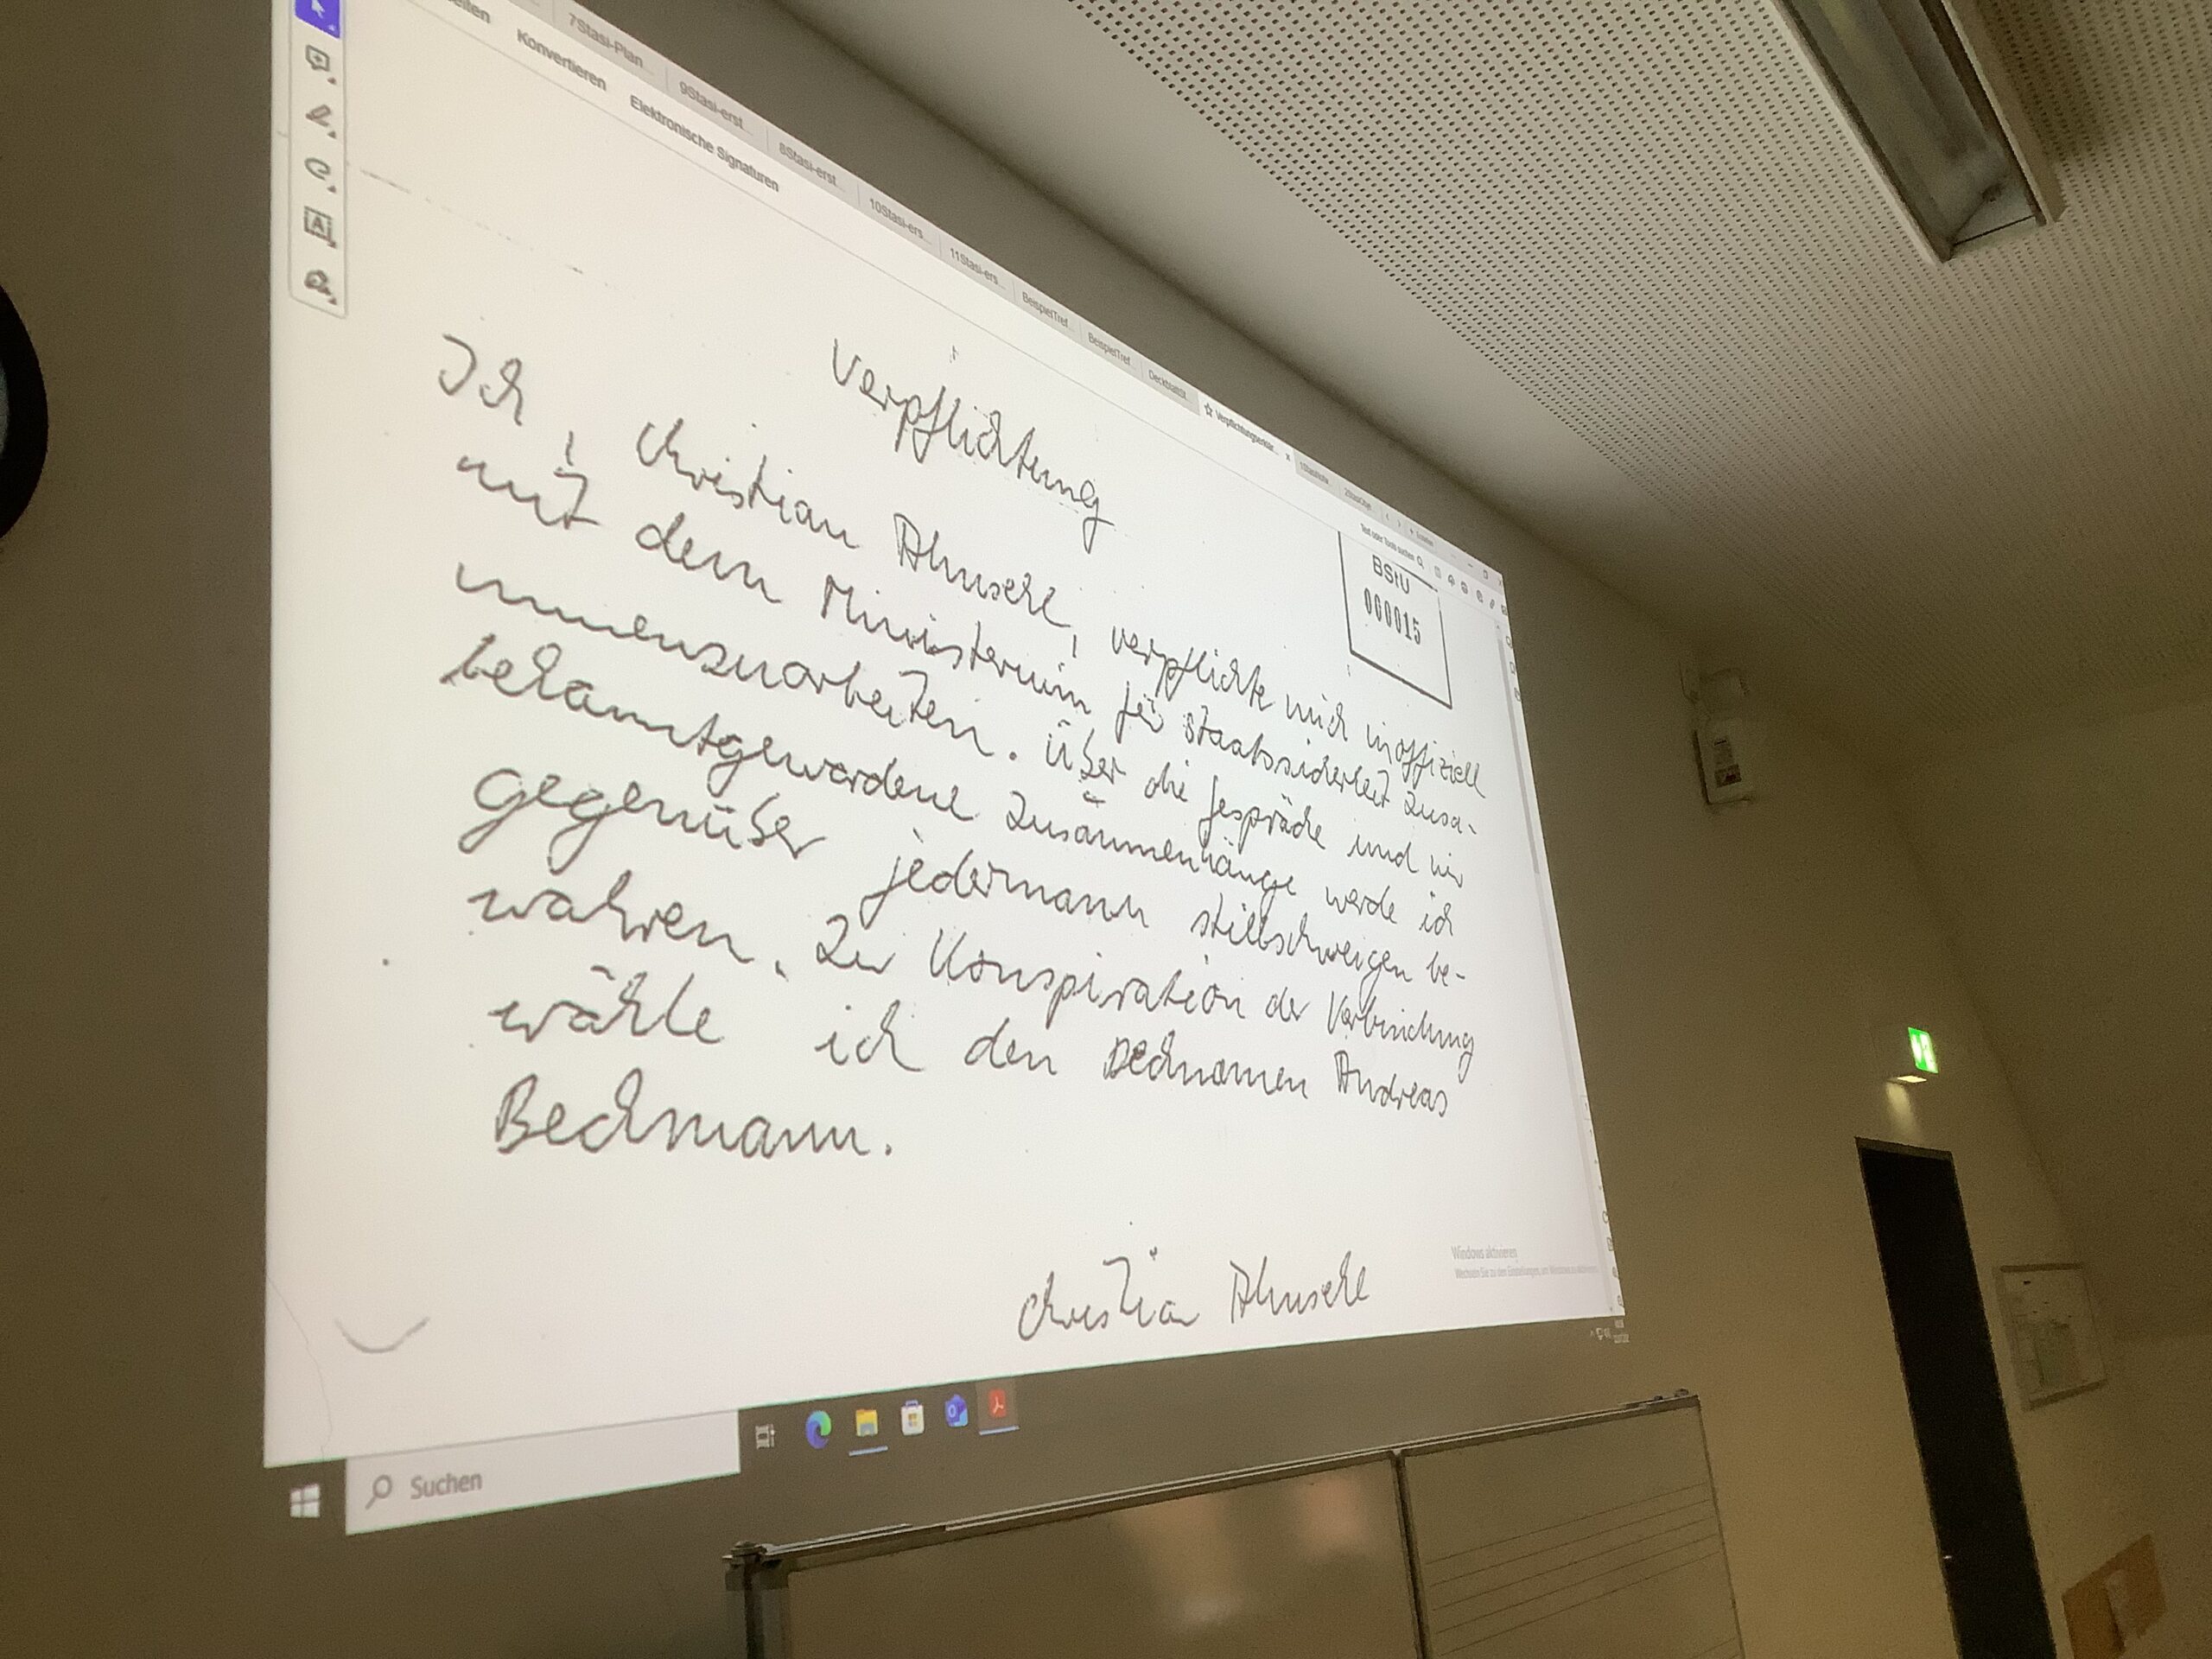 7Stasi-Plan...
9Stasi-erst...
8Stasi-erst...
10Stasi-ers...
11Stasi-ers...
BeispielTref...
BeispielTref...
Deckblatt
Verpflichtungserklär...
Konvertieren
Elektronische Signaturen
Text oder Tools suchen
BStU
000015
Verpflichtung
Ich, Christian Ahnsehl, verpflichte mich inoffiziell
mit dem Ministerium für Staatssicherheit zusa-
mmenzuarbeiten. Über die Gespräche und mir
bekanntgewordene Zusammenhänge werde ich
gegenüber jedermann stillschweigen be-
wahren. Zur Konspiration der Verbindung
wähle ich den Decknamen Andreas
Beckmann.
Christian Ahnsehl
Windows aktivieren
Wechseln Sie zu den Einstellungen, um Windows zu aktivieren.
Suchen